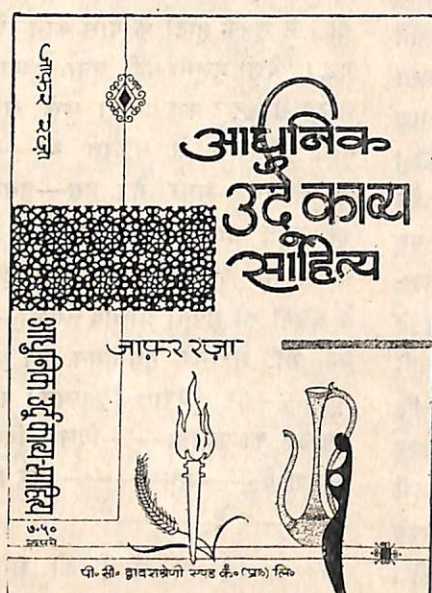 जाफ़र रज़ा
आधुनिक
उर्दू काव्य
साहित्य
जाफ़र रज़ा
आधुनिक उर्दू काव्य-साहित्य
७.५०
रुपये
पी॰ सी॰ द्वादशश्रेणी एण्ड कं॰ (प्रा॰) लि॰